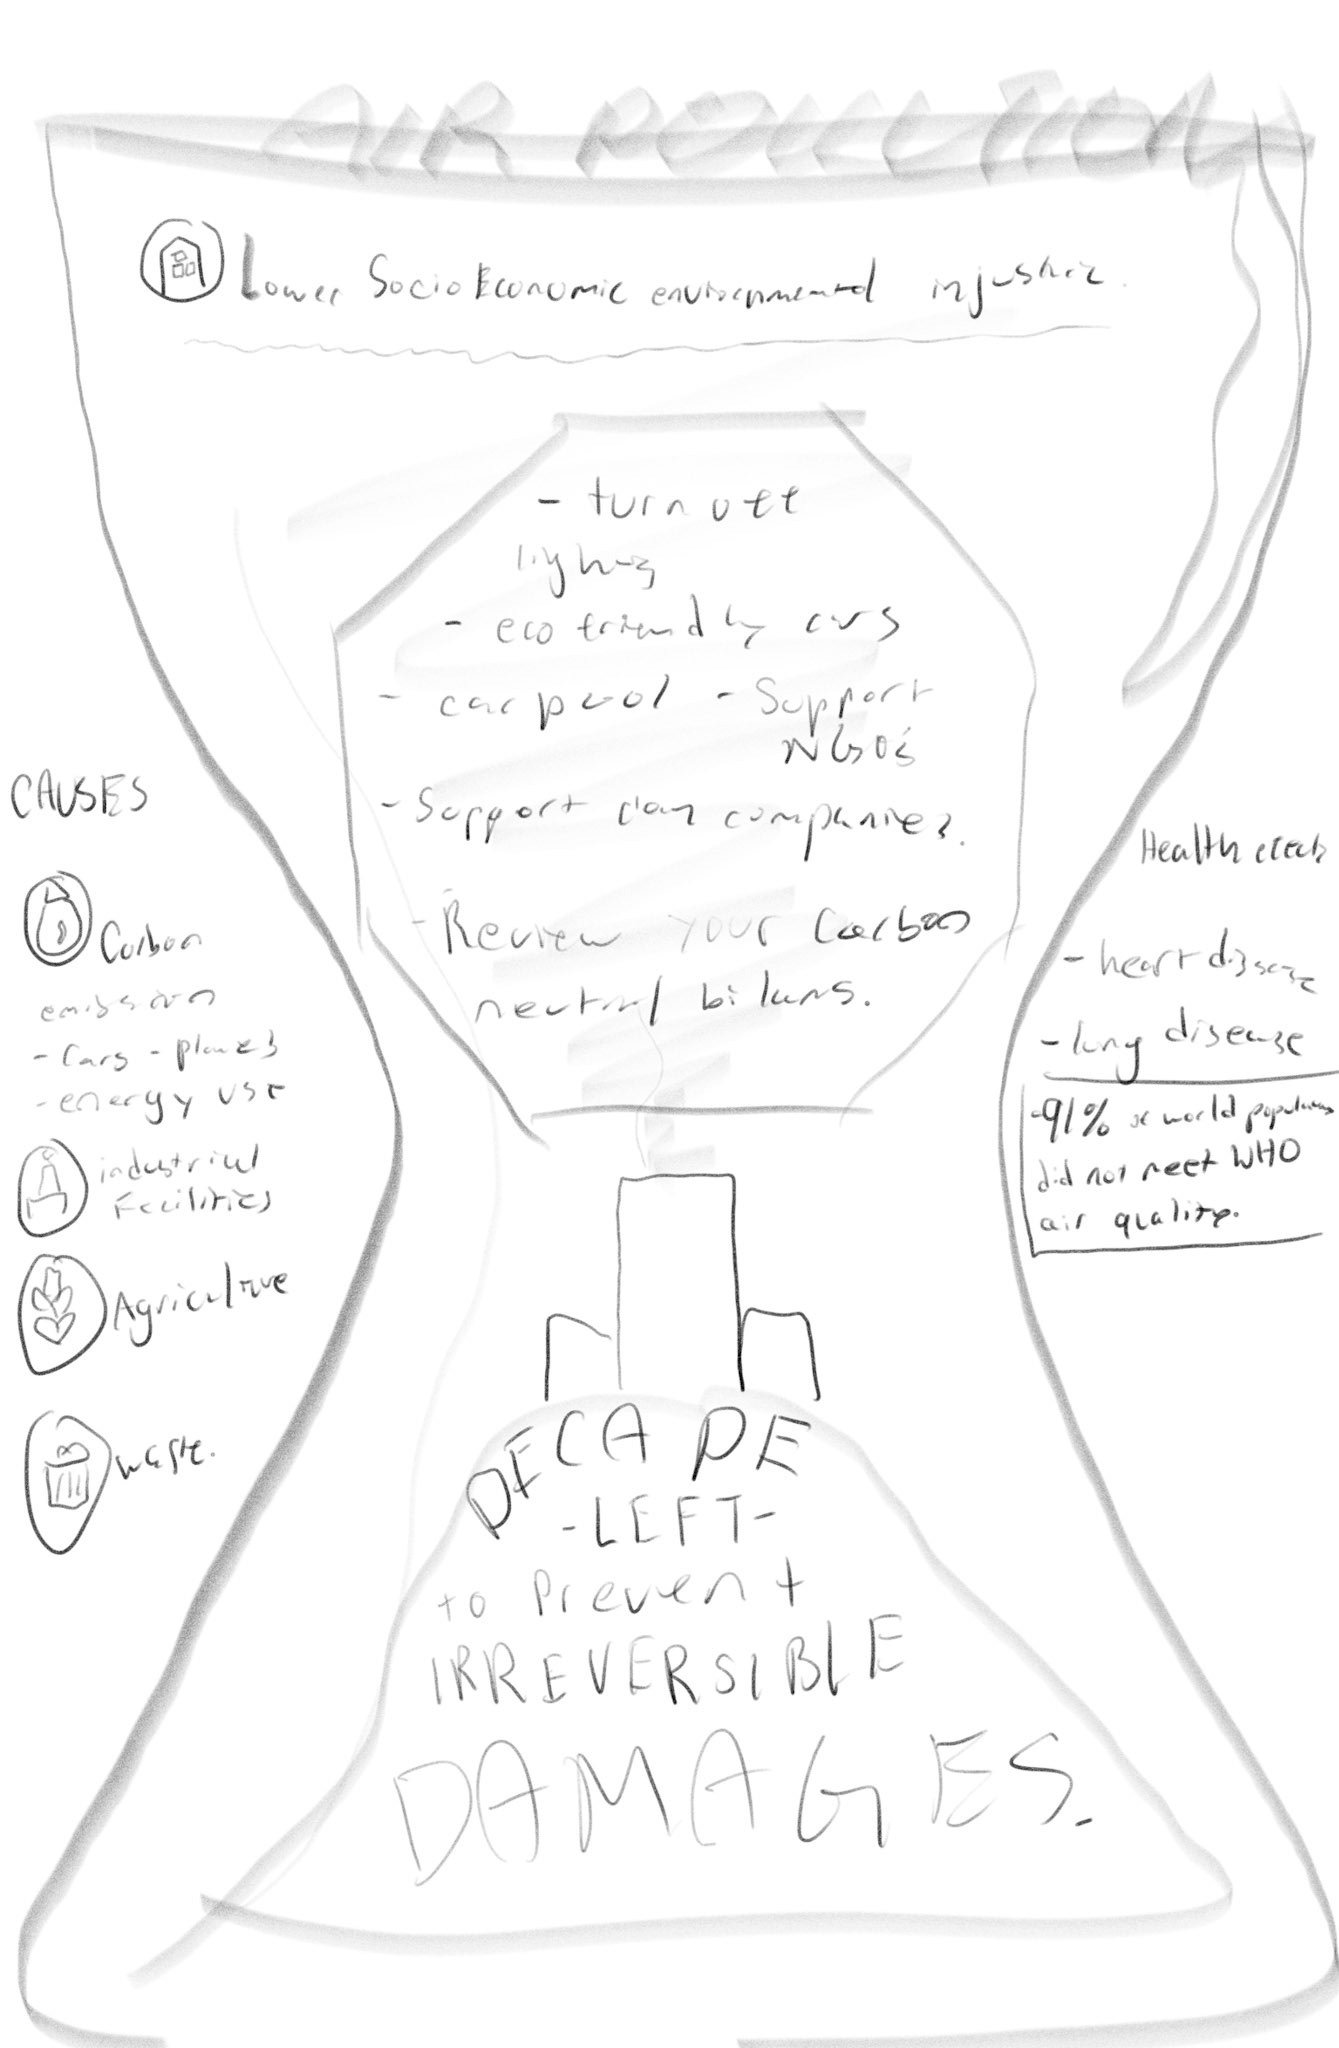 AIR POLLUTION
Lower SocioEconomic environmental injustice.
- turn off
lights
- eco friendly cars
- carpool - Support
NGO's
- Support clean companies.
- Review your Carbon
neutral
CAUSES
Carbon
emission
- Cars - planes
- energy use
industrial
Facilities
Agriculture
waste.
Health
- heart disease
- lung disease
- 91% of world population
did not meet WHO
air quality.
DECADE
- LEFT -
to Prevent
IRREVERSIBLE
DAMAGES.